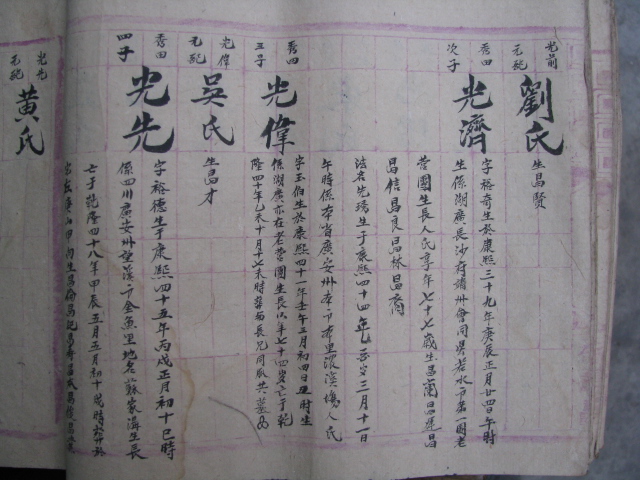 光前
元配
劉氏
生昌賢
秀田
次子
光濟
字裕奇生於康熙三十九年庚辰正月廿四日午時
生係湖廣長沙府靖州會同縣若水市第一圖老
營團生長人氏享年七十七歲生昌蘭昌進昌
昌信昌良昌林昌裔
法名先琇生于康熙四十四年乙酉歲三月十一日
午時係本省廣安州本市本里濃溪場人氏
秀田
三子
光偉
字玉伯生於康熙四十一年壬午三月初四日丑時生
係湖廣亦在老營團生長以年七十四歲亡于乾
隆四十年乙未十月十七未時葬與長兄同瓜共
光偉
元配
吳氏
生昌才
秀田
四子
光先
字裕德生于康熙四十五年丙戌正月初十巳時
係四川廣安州望溪市金魚里地名蘇家溝生長
亡于乾隆四十八年甲辰五月五月初十戌時葬於
光先
元配
黄氏